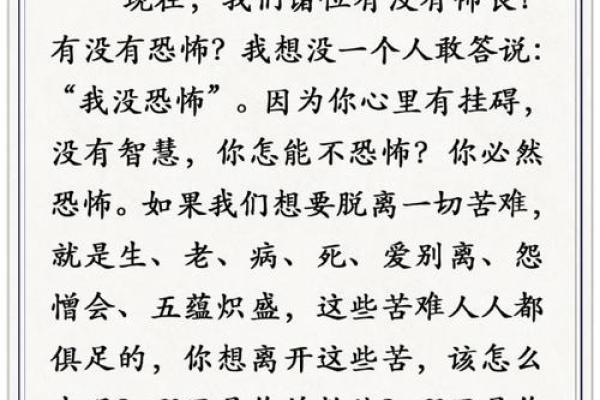 现在，我们诸位有没有怖畏？
有没有恐怖？我想没一个人敢答说：
“我没恐怖”。因为你心里有挂碍，
没有智慧，你怎能不恐怖？你必然
恐怖。如果我们想要脱离一切苦难，
就是生、老、病、死、爱别离、怨
憎会、五蕴炽盛，这些苦难人人都
俱足的，你想离开这些苦，该怎么